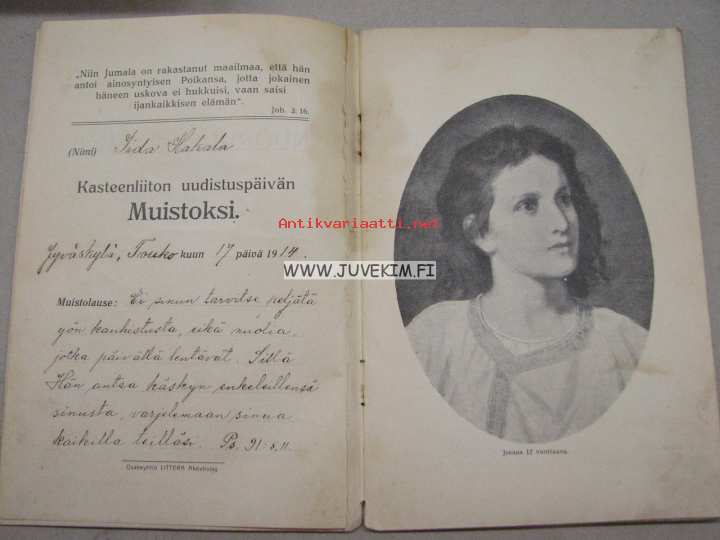 „Niin Jumala on rakastanut maailmaa, että hän
antoi ainosyntyisen Poikansa, jotta jokainen
häneen uskova ei hukkuisi, vaan saisi
ijankaikkisen elämän“.
Joh. 3: 16.
(Nimi) Iida Hakala
Kasteenliiton uudistuspäivän
Muistoksi.
Antikvariaatti.net
Jyväskylä, Touko kuun 17 päivä 1914.
WWW.JUVEKIM.FI
Muistolause: Ei sinun tarvitse peljätä
yön kauhistusta, eikä nuolia,
jotka päivällä lentävät. Sillä
Hän antaa käskyn enkeleillensä
sinusta, varjelemaan sinua
kaikilla teilläsi. Ps. 91:5,11.
Osakeyhtiö LITTERA Aktiebolag
Jeesus 12 vuotiaana.